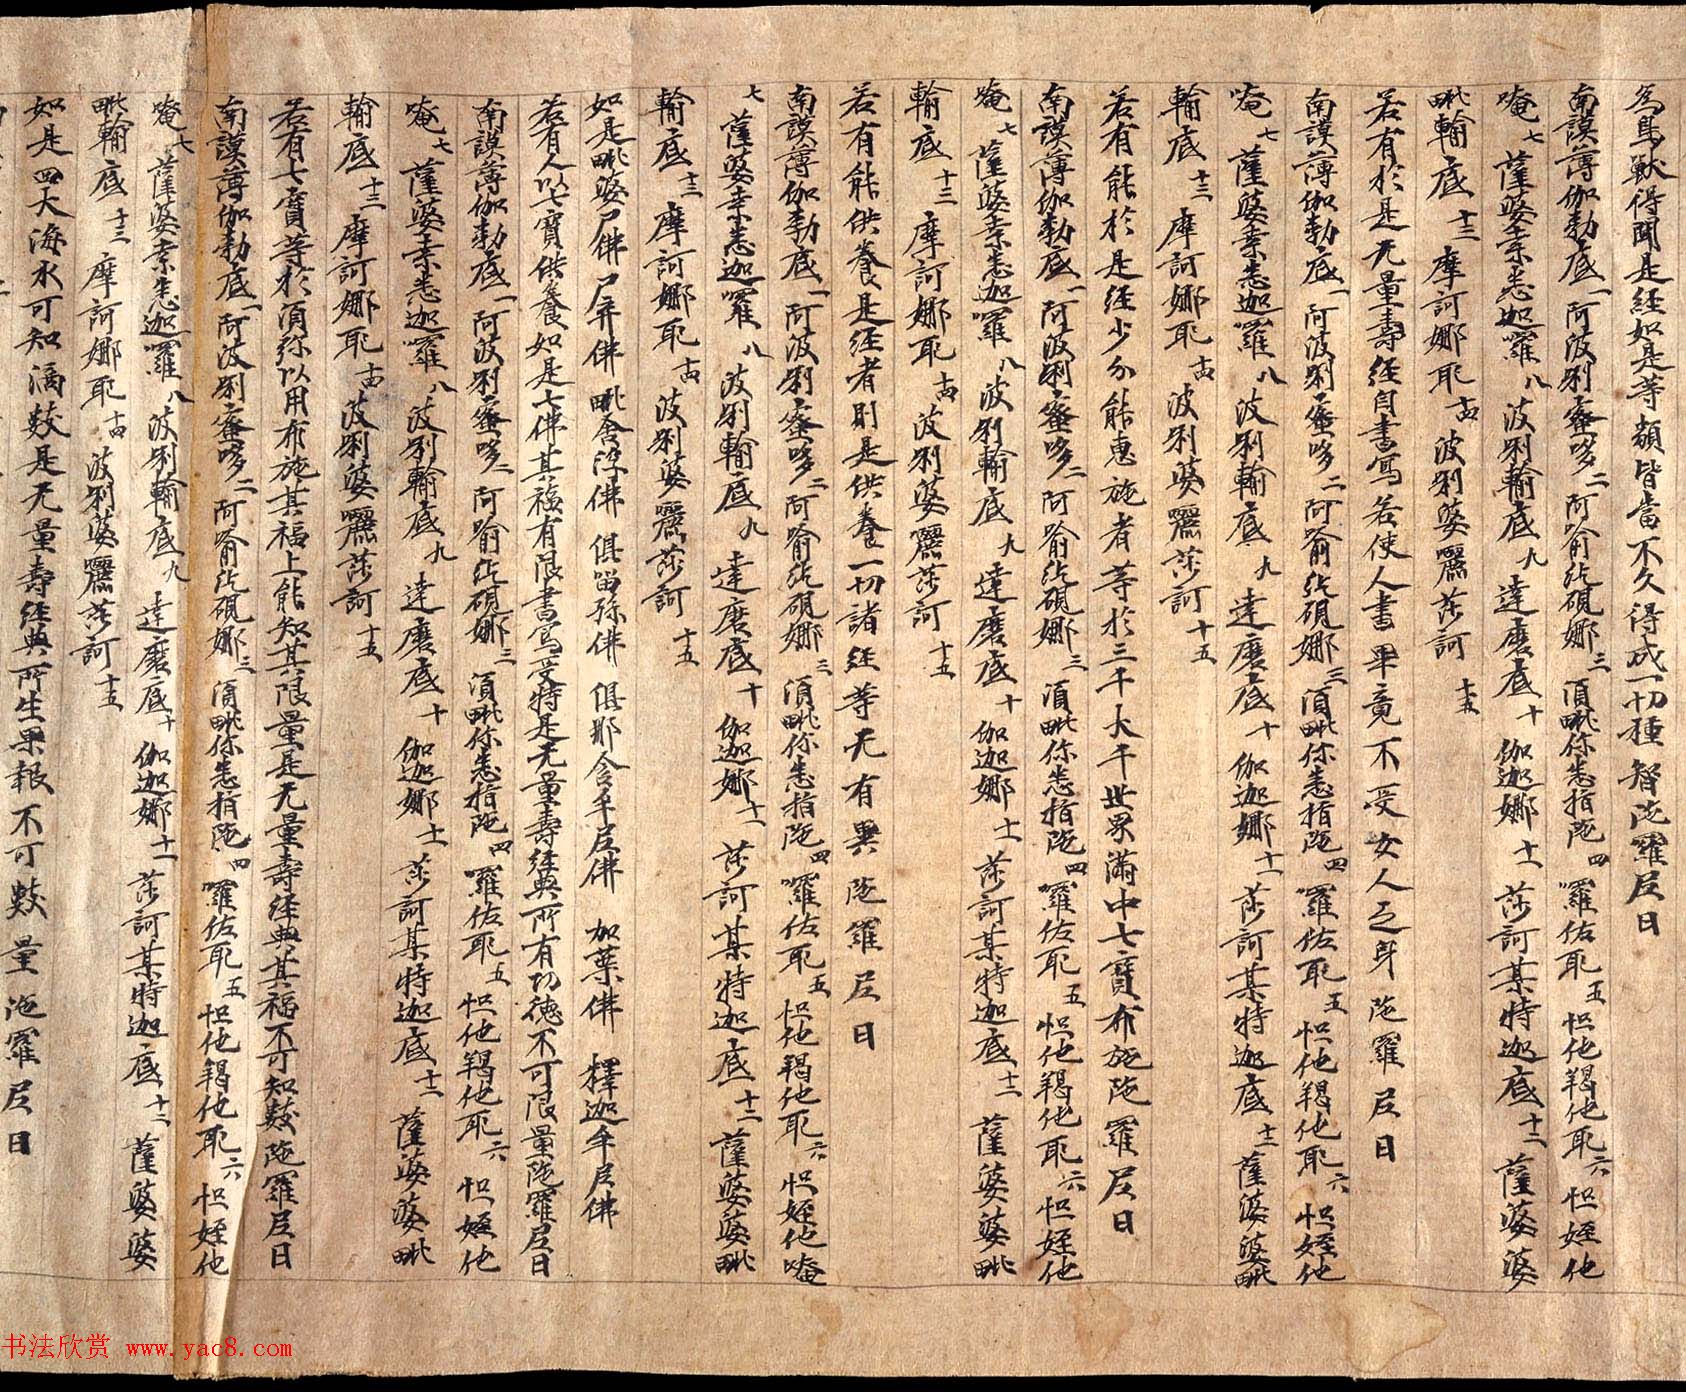 為鳥獸得聞是經如是等類皆當不久得成一切種智陁羅尼曰
南謨薄伽勃底一阿波唎蜜哆二阿喻紇硯娜三湏毗你悉指陁四囉佐耶五怛他羯他耶六怛姪他
唵七薩婆桒悉迦囉八波唎輸底九達磨底十伽迦娜十一莎訶某特迦底十二薩婆婆
毗輸底十三摩訶娜耶十四波唎婆㘑莎訶十五
若有於是无量壽經自書寫若使人書畢竟不受女人之身陁羅尼曰
南謨薄伽勃底一阿波唎蜜哆二阿喻紇硯娜三湏毗你悉指陁四囉佐耶五怛他羯他耶六怛姪他
唵七薩婆桒悉迦囉八波唎輸底九達磨底十伽迦娜十一莎訶某特迦底十二薩婆婆毗
輸底十三摩訶娜耶十四波唎婆㘑莎訶十五
若有能於是經少分能惠施者等於三千大千世界滿中七寶布施陁羅尼曰
南謨薄伽勃底一阿波唎蜜哆二阿喻紇硯娜三湏毗你悉指陁四囉佐耶五怛他羯他耶六怛姪他
唵七薩婆桒悉迦囉八波唎輸底九達磨底十伽迦娜十一莎訶某特迦底十二薩婆婆毗
輸底十三摩訶娜耶十四波唎婆㘑莎訶十五
若有能供養是經者則是供養一切諸經等无有異陁羅尼曰
南謨薄伽勃底一阿波唎蜜哆二阿喻紇硯娜三湏毗你悉指陁四囉佐耶五怛他羯他耶六怛姪他唵
七薩婆桒悉迦囉八波唎輸底九達磨底十伽迦娜十一莎訶某特迦底十二薩婆婆毗
輸底十三摩訶娜耶十四波唎婆㘑莎訶十五
如是毗婆尸佛尸弃佛毗舍浮佛俱留孫佛俱那含牟尼佛加葉佛釋迦牟尼佛
若有人以七寶供養如是七佛其福有限書寫受持是无量壽經典所有功德不可限量陁羅尼曰
南謨薄伽勃底一阿波唎蜜哆二阿喻紇硯娜三湏毗你悉指陁四囉佐耶五怛他羯他耶六怛姪他
唵七薩婆桒悉迦囉八波唎輸底九達磨底十伽迦娜十一莎訶某特迦底十二薩婆婆毗
輸底十三摩訶娜耶十四波唎婆㘑莎訶十五
若有七寶等於湏弥以用布施其福上能知其限量是无量壽經典其福不可知數陁羅尼曰
南謨薄伽勃底一阿波唎蜜哆二阿喻紇硯娜三湏毗你悉指陁四囉佐耶五怛他羯他耶六怛姪他
唵七薩婆桒悉迦囉八波唎輸底九達磨底十伽迦娜十一莎訶某特迦底十二薩婆婆
毗輸底十三摩訶娜耶十四波唎婆㘑莎訶十五
如是四大海水可知滴數是无量壽經典所生果報不可數量陁羅尼曰
书法欣赏 www.yac8.com